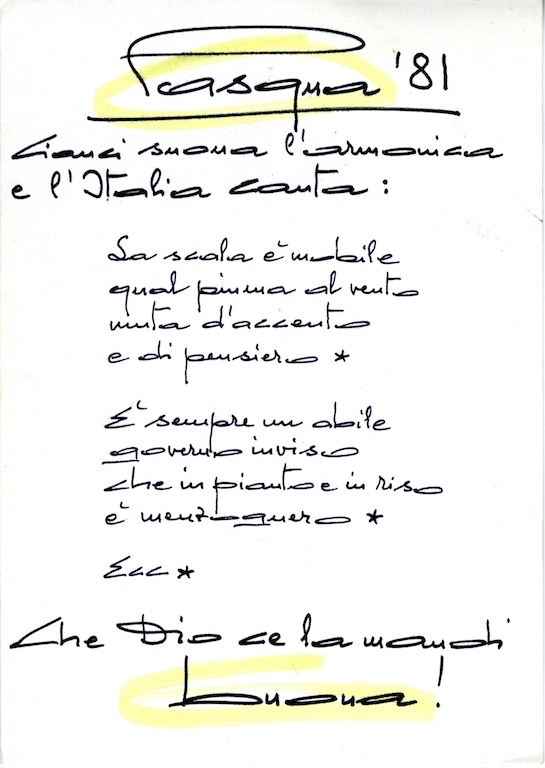 Pasqua '81
Cianci suona l'armonica
e l'Italia canta:
La scala è mobile
qual piuma al vento
muta d'accento
e di pensiero *
E' sempre un abile
governo inviso
che in pianto e in riso
è menzoguero *
Ecc *
Che Dio ce la mandi
buona!